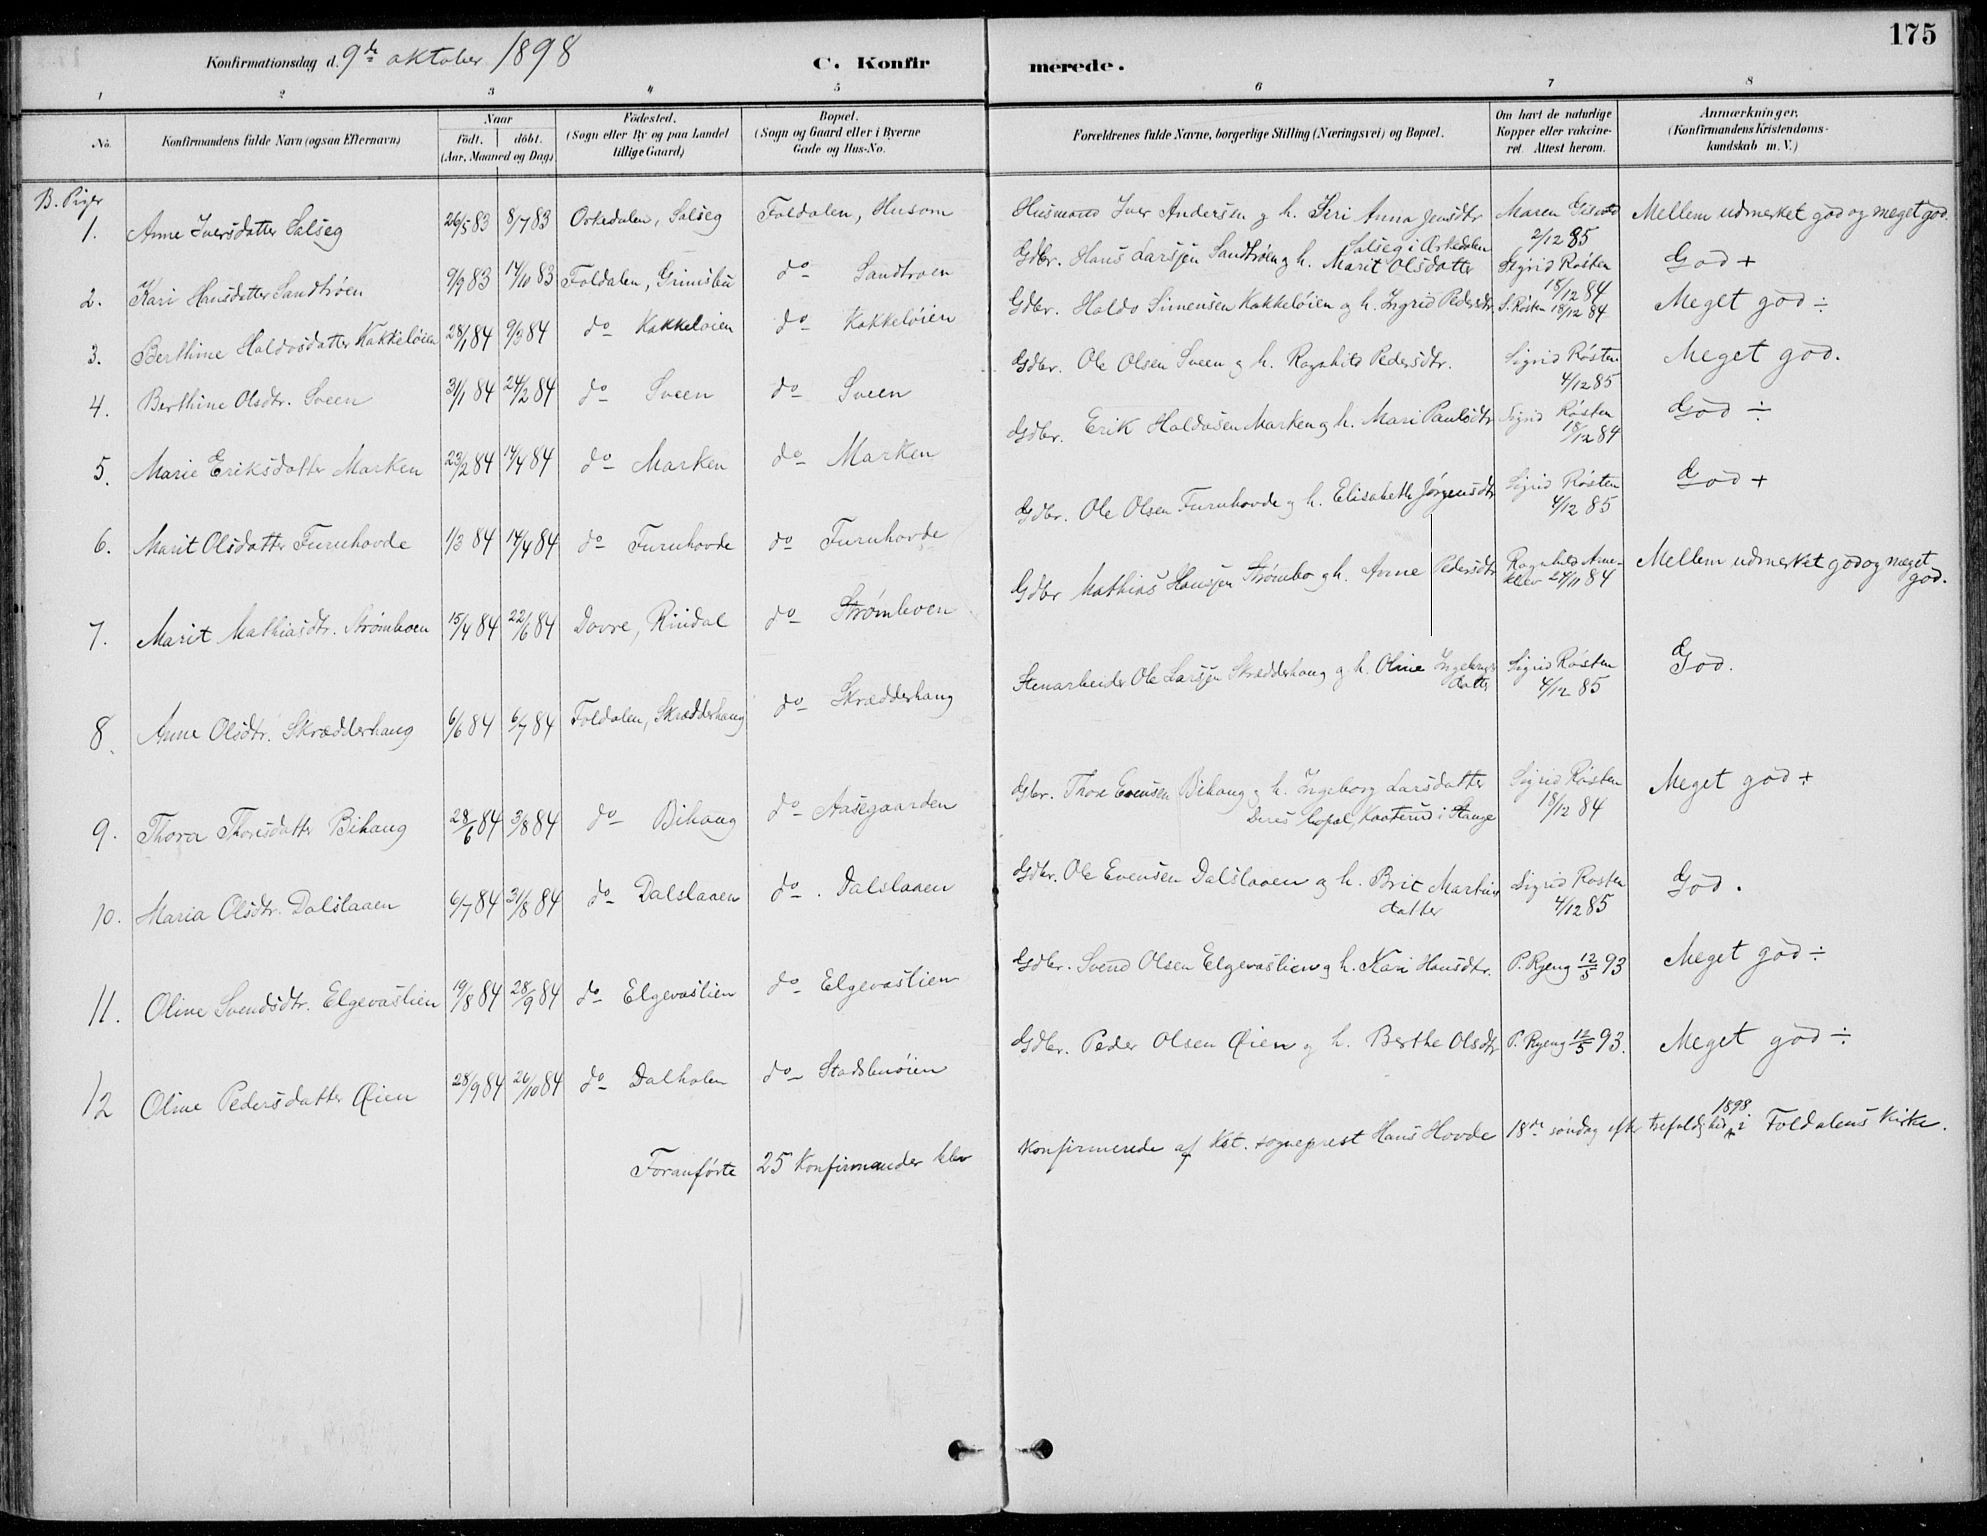 175
Konfirmationsdag d. 9de oktober 1898
C. Konfirmerede.
1 2 3 4 5 6 7 8
No. Konfirmandens fulde Navn (ogsaa Efternavn) Naar födt. döbt. (Aar, Maaned og Dag) Födested. (Sogn eller By og paa Landet tillige Gaard) Bopæl. (Sogn og Gaard eller i Byerne Gade og Hus-No. Forældrenes fulde Navne, borgerlige Stilling (Næringsvei) og Bopæl. Om havt de naturlige Kopper eller vakcineret. Attest herom. Anmærkninger. (Konfirmandens Kristendomskundskab m. V.)
B. Piger
1. Anne Iversdatter Salseg 26/5 83 8/7 83 Orkedalen, Salseg Foldalen, Husom Husmand Iver Andersen og h. Siri Anna Jensdtr Salseg i Orkedalen Maren 2/12 85 Mellem udmerket god og meget god.
2. Kari Hansdatter Sandtrøen 9/9 83 14/10 83 Foldalen, Grimsbu do Sandtrøen Gdbr. Hans Larssen Sandtrøen og h. Marit Olsdatter Sigrid Røsten 18/12 84 God +
3. Berthine Haldosdatter Kakkeløien 28/1 84 9/3 84 do Kakkeløien do Kakkeløien Gdbr. Haldo Simensen Kakkeløien og h. Ingrid Pedersdtr. S. Røsten 18/12 84 Meget god ÷
4. Berthine Olsdtr. Sveen 31/1 84 24/2 84 do Sveen do Sveen Gdbr. Ole Olsen Sveen og h. Ragnhild Pedersdtr. Sigrid Røsten 4/12 85 Meget god.
5. Marie Eriksdatter Marken 23/2 84 14/4 84 do Marken do Marken Gdbr. Erik Haldosen Marken og h. Mari Paulsdtr Sigrid Røsten 18/12 84 God ÷
6. Marit Olsdatter Furuhovde 1/3 84 14/4 84 do Furuhovde do Furuhovde Gdbr. Ole Olsen Furuhovde og h. Elisabeth Jørgensdtr Sigrid Røsten 4/12 85 God +
7. Marit Mathiasdtr. Strømboen 15/4 84 22/6 84 Dovre, Rindal do Strømboen Gdbr Mathias Hanssen Strømbo og h. Anne Pedersdtr Ragnhild 24/11 84 Mellem udmerket god og meget god.
8. Anne Olsdtr. Skrædderhaug 6/6 84 6/7 84 Foldalen, Skrædderhaug do Skrædderhaug Stenarbeider Ole Larssen Skrædderhaug og h. Oline Ingebrigtsdatter Sigrid Røsten 4/12 85 God.
9. Thora Thoresdatter Bihaug 28/6 84 3/8 84 do Bihaug do Aasegaarden Gbr. Thore Evensen Bihaug og h. Ingeborg Larsdatter Deres bopæl, i Stange Sigrid Røsten 18/12 84 Meget god +
10. Maria Olsdtr. Dalslaaen 6/7 84 31/8 84 do Dalslaaen do. Dalslaaen Gdbr. Ole Evensen Dalslaaen og h. Brit Martinsdatter Sigrid Røsten 4/12 85 God.
11. Oline Svendsdtr. Elgevaslien 19/8 84 28/9 84 do Elgevaslien do Elgevaslien Gdbr. Svend Olsen Elgevaslien og h. Kari Hansdtr. P. Ryeng 12/5 93 Meget god ÷
12 Oline Pedersdatter Øien 28/9 84 26/10 84 do Dalholen do Stadsbuøien Gdbr. Peder Olsen Øien og h. Berthe Olsdtr P. Ryeng 12/5 93. Meget god ÷
Foranførte 25 Konfirmander blev Konfirmerede af Kst. sogneprest Hans Hovde 18de søndag efter trefoldighed 1898 i Foldalens Kirke.